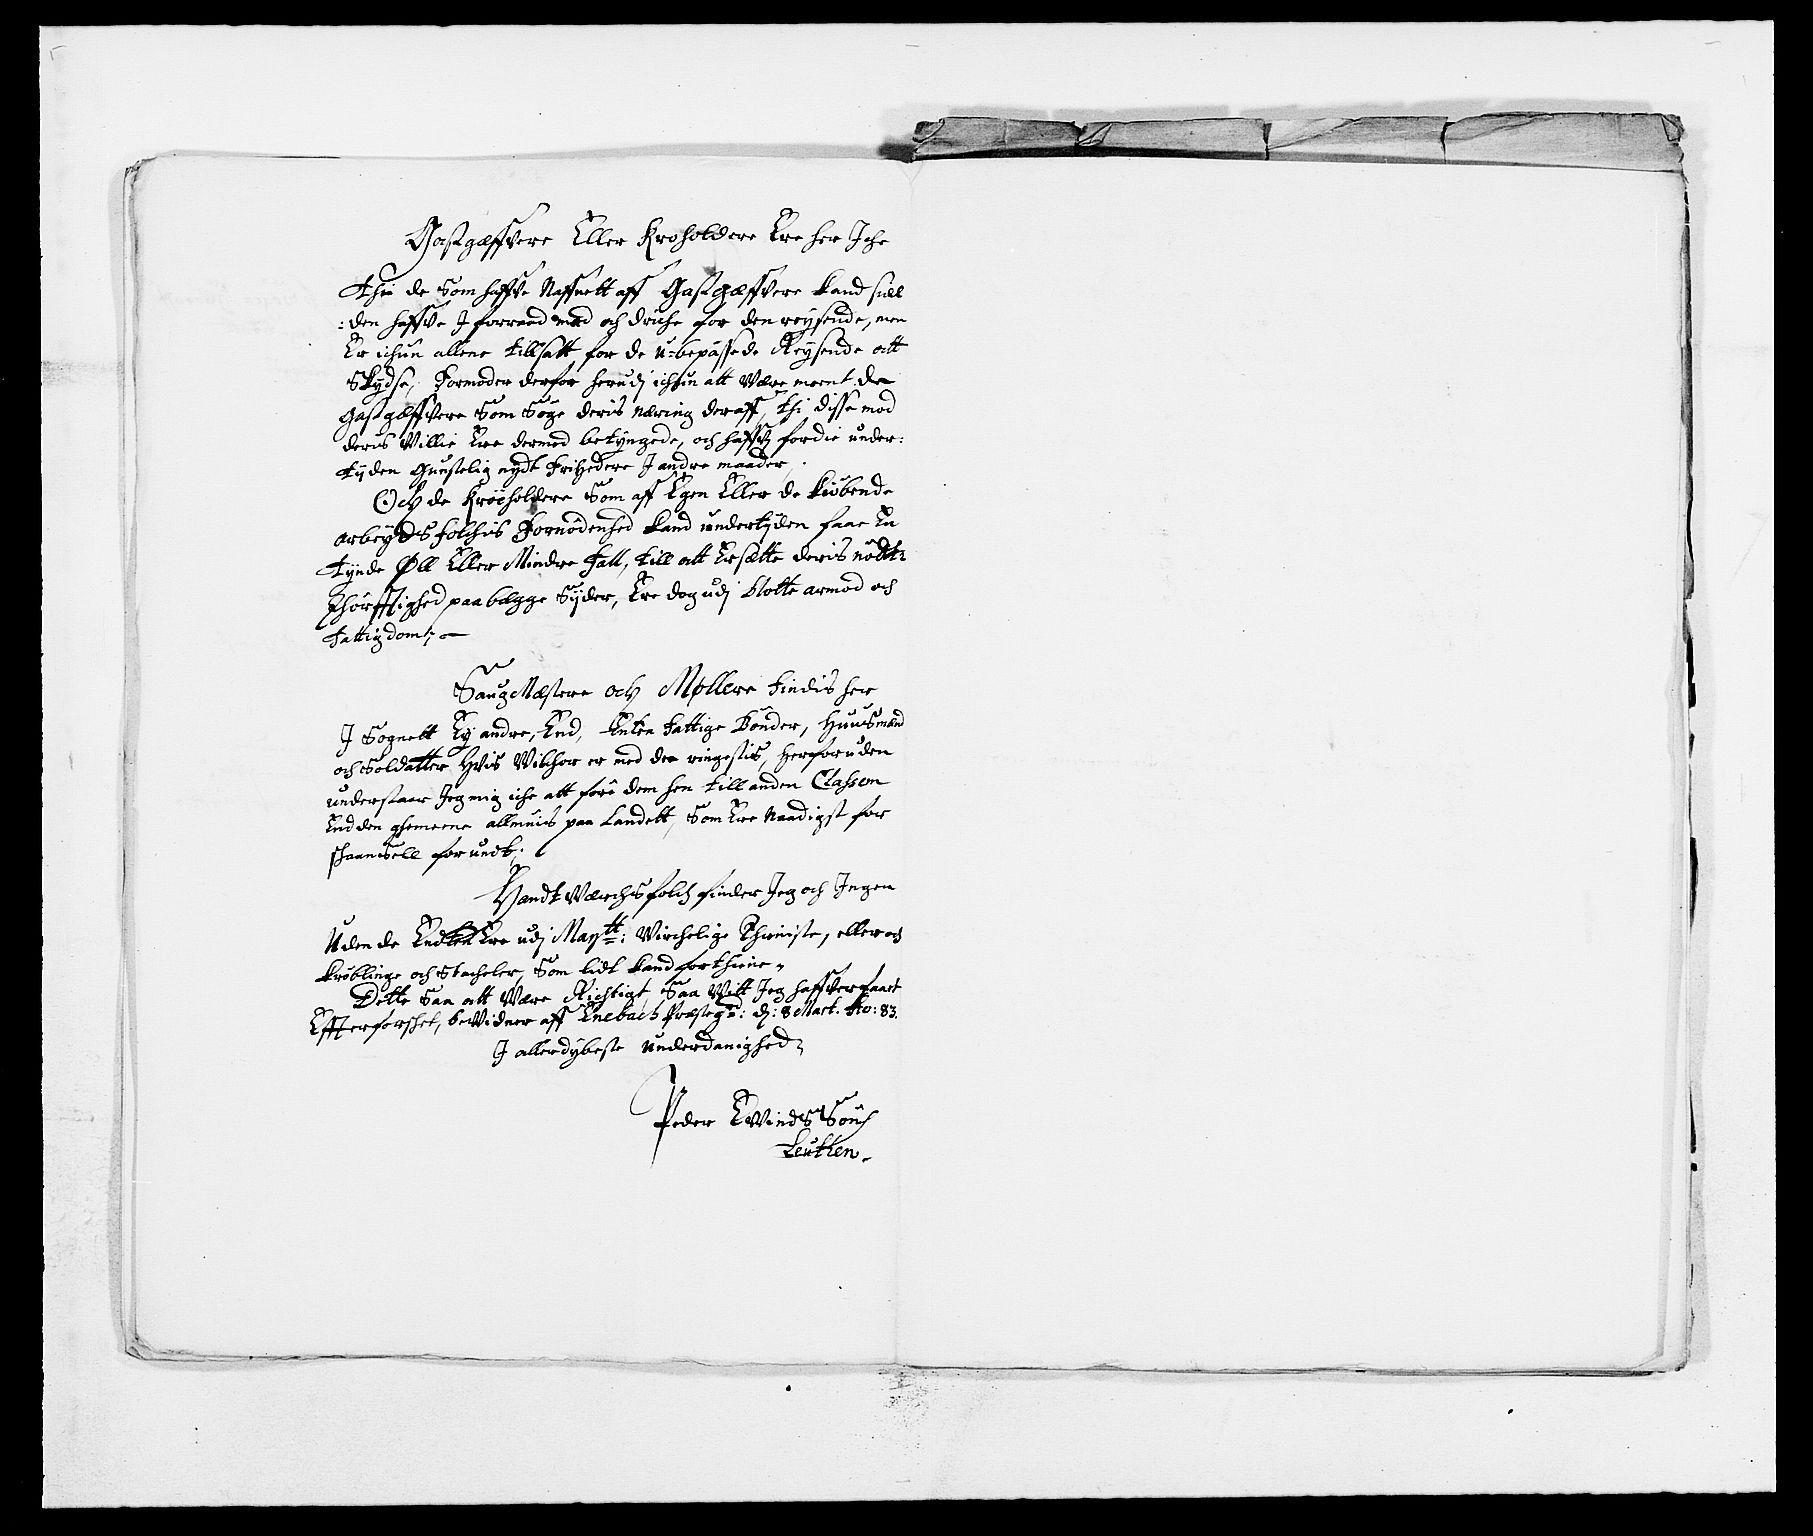 Gastgæffvere Eller Kroholdere Ere her Iche
thi de som haffve Naffnett aff Gastgæffvere kand siell
:den haffve I forraad mad och driche for den reysende, men
Er ichun allene tillsatt, for de u-bepassede Reysende att
Skydse, Formoder derfor herudj ichun att være meent de
Gastgæffvere Som Søge deris næring deraff, thi disse mod
deris Villie Ere dermed betyngede, och haffve fordie under:
tijden Gunstelig nydt Friheder I andre maader,
Och de Krøeholdere Som aff Egen Eller de Kiøbende
arbeyds folchis Fornødenhed kand undertijden faae En
tynde Øll Eller Mindre fall, till att Ersætte deris nødt:
thørfftighed paa begge Syder, Ere dog udj blotte armod och
fattigdom; —
Saug Mæstere och Møllere findis her
I Sognett Ey andre, End, Enten fattige Bønder, Huusmænd
och Soldatter Hvis Vilchor er med de ringestis, herforuden
understaar Jeg mig iche att føre dem hen till anden Classem
End den gemeene allmuis paa Landett, Som Ere Naadigst for
skaansell forundt;
Handtværchsfolch finder Jeg och Ingen
Uden de Endten Ere udj Maytt: Virchelige Thieniste, eller och
Krøblinge och Stacheler, Som lidt kand forthiene,
Dette Saa att være Richtigt, Saa vitt Jeg haffver faaet
Effterforsket, bevidner aff Enebach Præstegd: dj: 8 Mart. Ao: 83.
I allerdybeste underdanighed
Peder Evinds Sønn
Leutten.